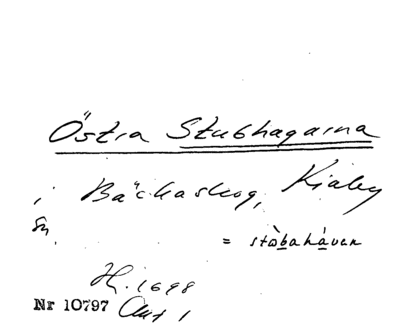 Östra Stubhagarna
i Bäckaskog, Kiaby
sn.
= stàbahávan
H. 1698
Nr 10797 Ant 1